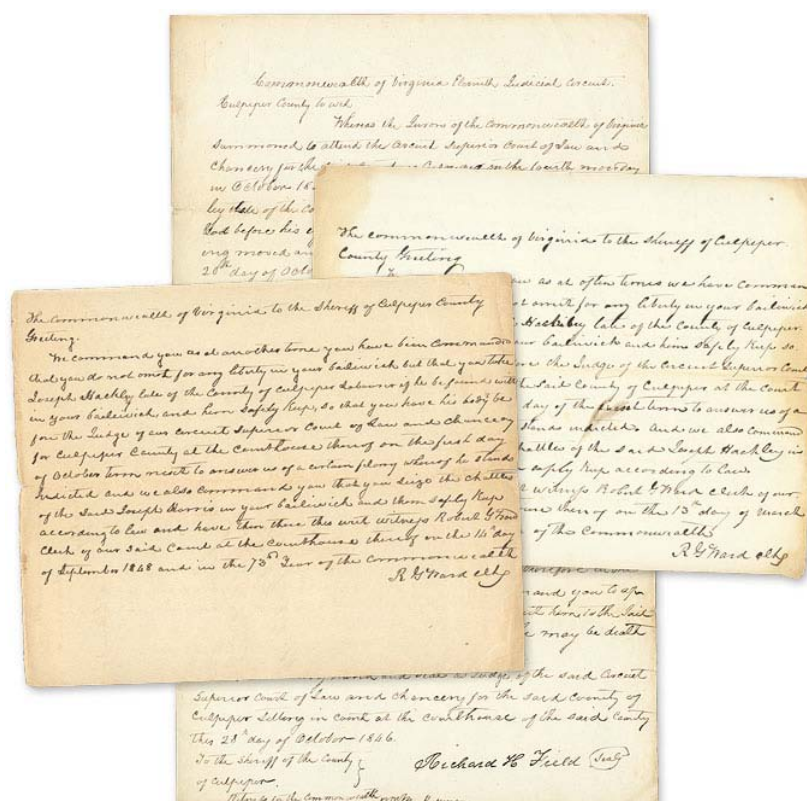 Commonwealth of Virginia Eleventh Judicial Circuit.
Culpeper County to wit
Whereas the Jurors of the Commonwealth of Virginia
Summoned to attend the Circuit Superior Court of Law and
Chancery for the
on the fourth monday
in October 18
by of the Co
God before his
ing moved an
20th day of Octo
The Commonwealth of Virginia to the Sheriff of Culpeper
County Greeting
as at often times we have comman
omit for any liberty in your bailiwick
Hackley late of the County of Culpeper
bailiwick and him safely Keep so
the Judge of the Circuit Superior Court
the Said County of Culpeper at the Court
day of the term to answer us of a
Stands indicted. And we also command
chattles of the said Joseph Hackley in
safely Keep according to law
Robert G Ward Clerk of our
thereof on the 13th day of March
of the Commonwealth
R G Ward clk
The Commonwealth of Virginia to the Sheriff of Culpeper County
Greeting.
We command you as at another time you have been commanded
that you do not omit for any liberty in your bailiwick but that you take
Joseph Hackly late of the County of Culpeper Labourer if he be found with
in your bailiwick and him safely Keep, so that you have his body be
fore the Judge of our Circuit Superior Court of Law and Chancery
for Culpeper County at the Courthouse thereof on the first day
of October term next to answer us of a certain felony whereof he stands
indicted and we also command you that you Seize the chattles
of the Said Joseph Harris in your bailiwick and them safely Keep
according to law and have then there this writ witness Robert G Ward
Clerk of our Said Court at the Courthouse thereof on the 14th day
of September 1848 and in the 73d Year of the Commonwealth
R G Ward clk
and you to
him to the Said
he may be dealt
hand and seal as Judge of the said Circuit
Superior Court of Law and Chancery for the said County of
Culpeper Sitting in Court at the Courthouse of the said County
this 28th day of October 1846.
To the Sheriff of the County
of Culpeper.
Richard H Field (Seal)